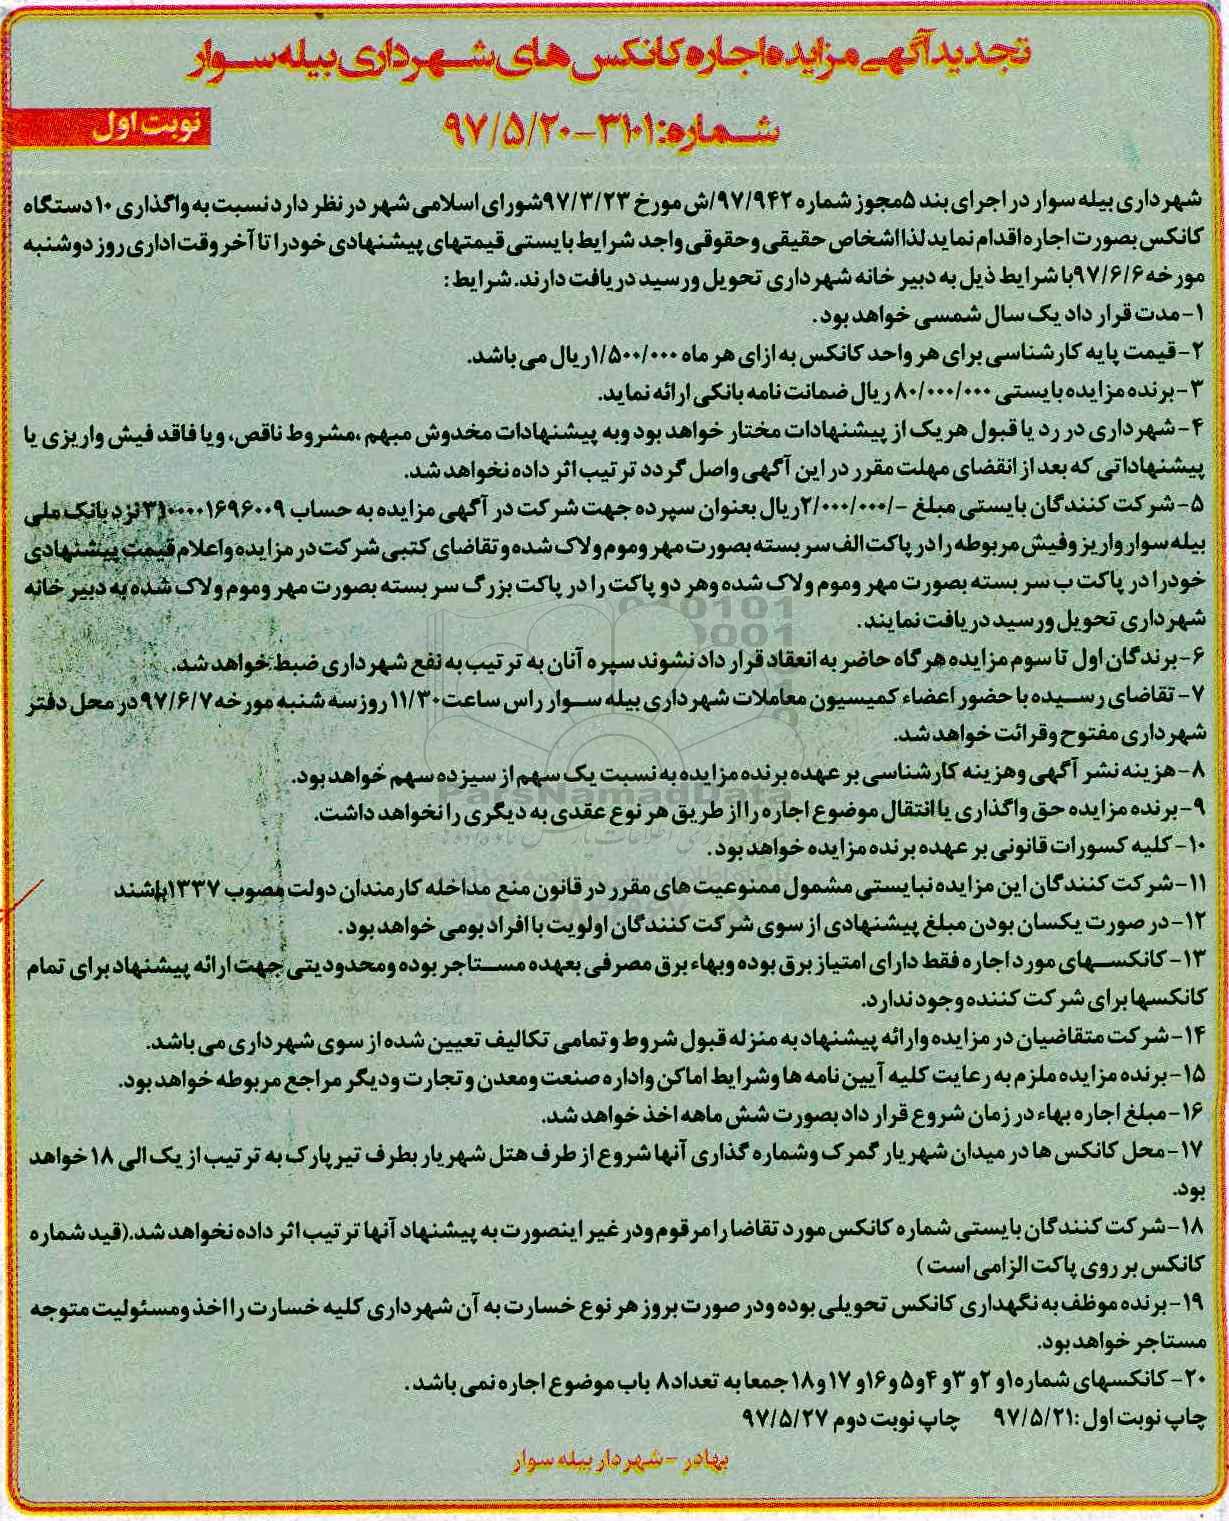 تجدید آگهی مزایده اجاره کانکس های شهرداری بیله سوار
شماره: ۳۱۰۱-۹۷/۵/۲۰
نوبت اول
شهرداری بیله سوار در اجرای بند ۵ مجوز شماره ۹۷/۹۴۲/ش مورخ ۹۷/۳/۲۳ شورای اسلامی شهر در نظر دارد نسبت به واگذاری ۱۰ دستگاه
کانکس بصورت اجاره اقدام نماید لذا اشخاص حقیقی و حقوقی واجد شرایط بایستی قیمتهای پیشنهادی خود را تا آخر وقت اداری روز دوشنبه
مورخه ۹۷/۶/۶ با شرایط ذیل به دبیر خانه شهرداری تحویل ورسید دریافت دارند. شرایط:
۱-مدت قرار داد یک سال شمسی خواهد بود.
۲-قیمت پایه کارشناسی برای هر واحد کانکس به ازای هر ماه ۱/۵۰۰/۰۰۰ ریال می باشد.
۳-برنده مزایده بایستی ۸۰/۰۰۰/۰۰۰ ریال ضمانت نامه بانکی ارائه نماید.
۴-شهرداری در رد یا قبول هر یک از پیشنهادات مختار خواهد بود وبه پیشنهادات مخدوش مبهم ،مشروط ناقص، ویا فاقد فیش واریزی یا
پیشنهاداتی که بعد از انقضای مهلت مقرر در این آگهی واصل گردد ترتیب اثر داده نخواهد شد.
۵-شرکت کنندگان بایستی مبلغ -/۲/۰۰۰/۰۰۰ ریال بعنوان سپرده جهت شرکت در آگهی مزایده به حساب ۳۱۰۰۰۰۱۶۹۶۰۰۹ نزد بانک ملی
بیله سوار واریز وفیش مربوطه را در پاکت الف سر بسته بصورت مهر وموم ولاک شده و تقاضای کتبی شرکت در مزایده واعلام قیمت پیشنهادی
خود را در پاکت ب سر بسته بصورت مهر وموم ولاک شده وهر دو پاکت را در پاکت بزرگ سر بسته بصورت مهر وموم ولاک شده به دبیر خانه
شهرداری تحویل ورسید دریافت نمایند.
۶-برندگان اول تا سوم مزایده هر گاه حاضر به انعقاد قرار داد نشوند سپره آنان به ترتیب به نفع شهرداری ضبط خواهد شد.
۷-تقاضای رسیده با حضور اعضاء کمیسیون معاملات شهرداری بیله سوار راس ساعت ۱۱/۳۰ روز سه شنبه مورخه ۹۷/۶/۷ در محل دفتر
شهرداری مفتوح وقرائت خواهد شد.
۸-هزینه نشر آگهی وهزینه کارشناسی بر عهده برنده مزایده به نسبت یک سهم از سیزده سهم خواهد بود.
۹-برنده مزایده حق واگذاری یا انتقال موضوع اجاره را از طریق هر نوع عقدی به دیگری را نخواهد داشت.
۱۰-کلیه کسورات قانونی بر عهده برنده مزایده خواهد بود.
۱۱-شرکت کنندگان این مزایده نبایستی مشمول ممنوعیت های مقرر در قانون منع مداخله کارمندان دولت مصوب ۱۳۳۷ باشند
۱۲-در صورت یکسان بودن مبلغ پیشنهادی از سوی شرکت کنندگان اولویت با افراد بومی خواهد بود.
۱۳-کانکسهای مورد اجاره فقط دارای امتیاز برق بوده وبهاء برق مصرفی بعهده مستاجر بوده ومحدودیتی جهت ارائه پیشنهاد برای تمام
کانکسها برای شرکت کننده وجود ندارد.
۱۴-شرکت متقاضیان در مزایده وارائه پیشنهاد به منزله قبول شروط و تمامی تکالیف تعیین شده از سوی شهرداری می باشد.
۱۵-برنده مزایده ملزم به رعایت کلیه آیین نامه ها وشرایط اماکن واداره صنعت ومعدن و تجارت ودیگر مراجع مربوطه خواهد بود.
۱۶-مبلغ اجاره بهاء در زمان شروع قرار داد بصورت شش ماهه اخذ خواهد شد.
۱۷-محل کانکس ها در میدان شهریار گمرک وشماره گذاری آنها شروع از طرف هتل شهریار بطرف تیر پارک به ترتیب از یک الی ۱۸ خواهد
بود.
۱۸-شرکت کنندگان بایستی شماره کانکس مورد تقاضا را مرقوم ودر غیر اینصورت به پیشنهاد آنها ترتیب اثر داده نخواهد شد.(قید شماره
کانکس بر روی پاکت الزامی است)
۱۹-برنده موظف به نگهداری کانکس تحویلی بوده ودر صورت بروز هر نوع خسارت به آن شهرداری کلیه خسارت را اخذ ومسئولیت متوجه
مستاجر خواهد بود.
۲۰-کانکسهای شماره ۱و ۲و ۳و ۴و۵ و۱۶و ۱۷ و۱۸ جمعا به تعداد ۸ باب موضوع اجاره نمی باشد.
چاپ نوبت اول: ۹۷/۵/۲۱ چاپ نوبت دوم ۹۷/۵/۲۷
بهادر - شهردار بیله سوار
ParsNamadData